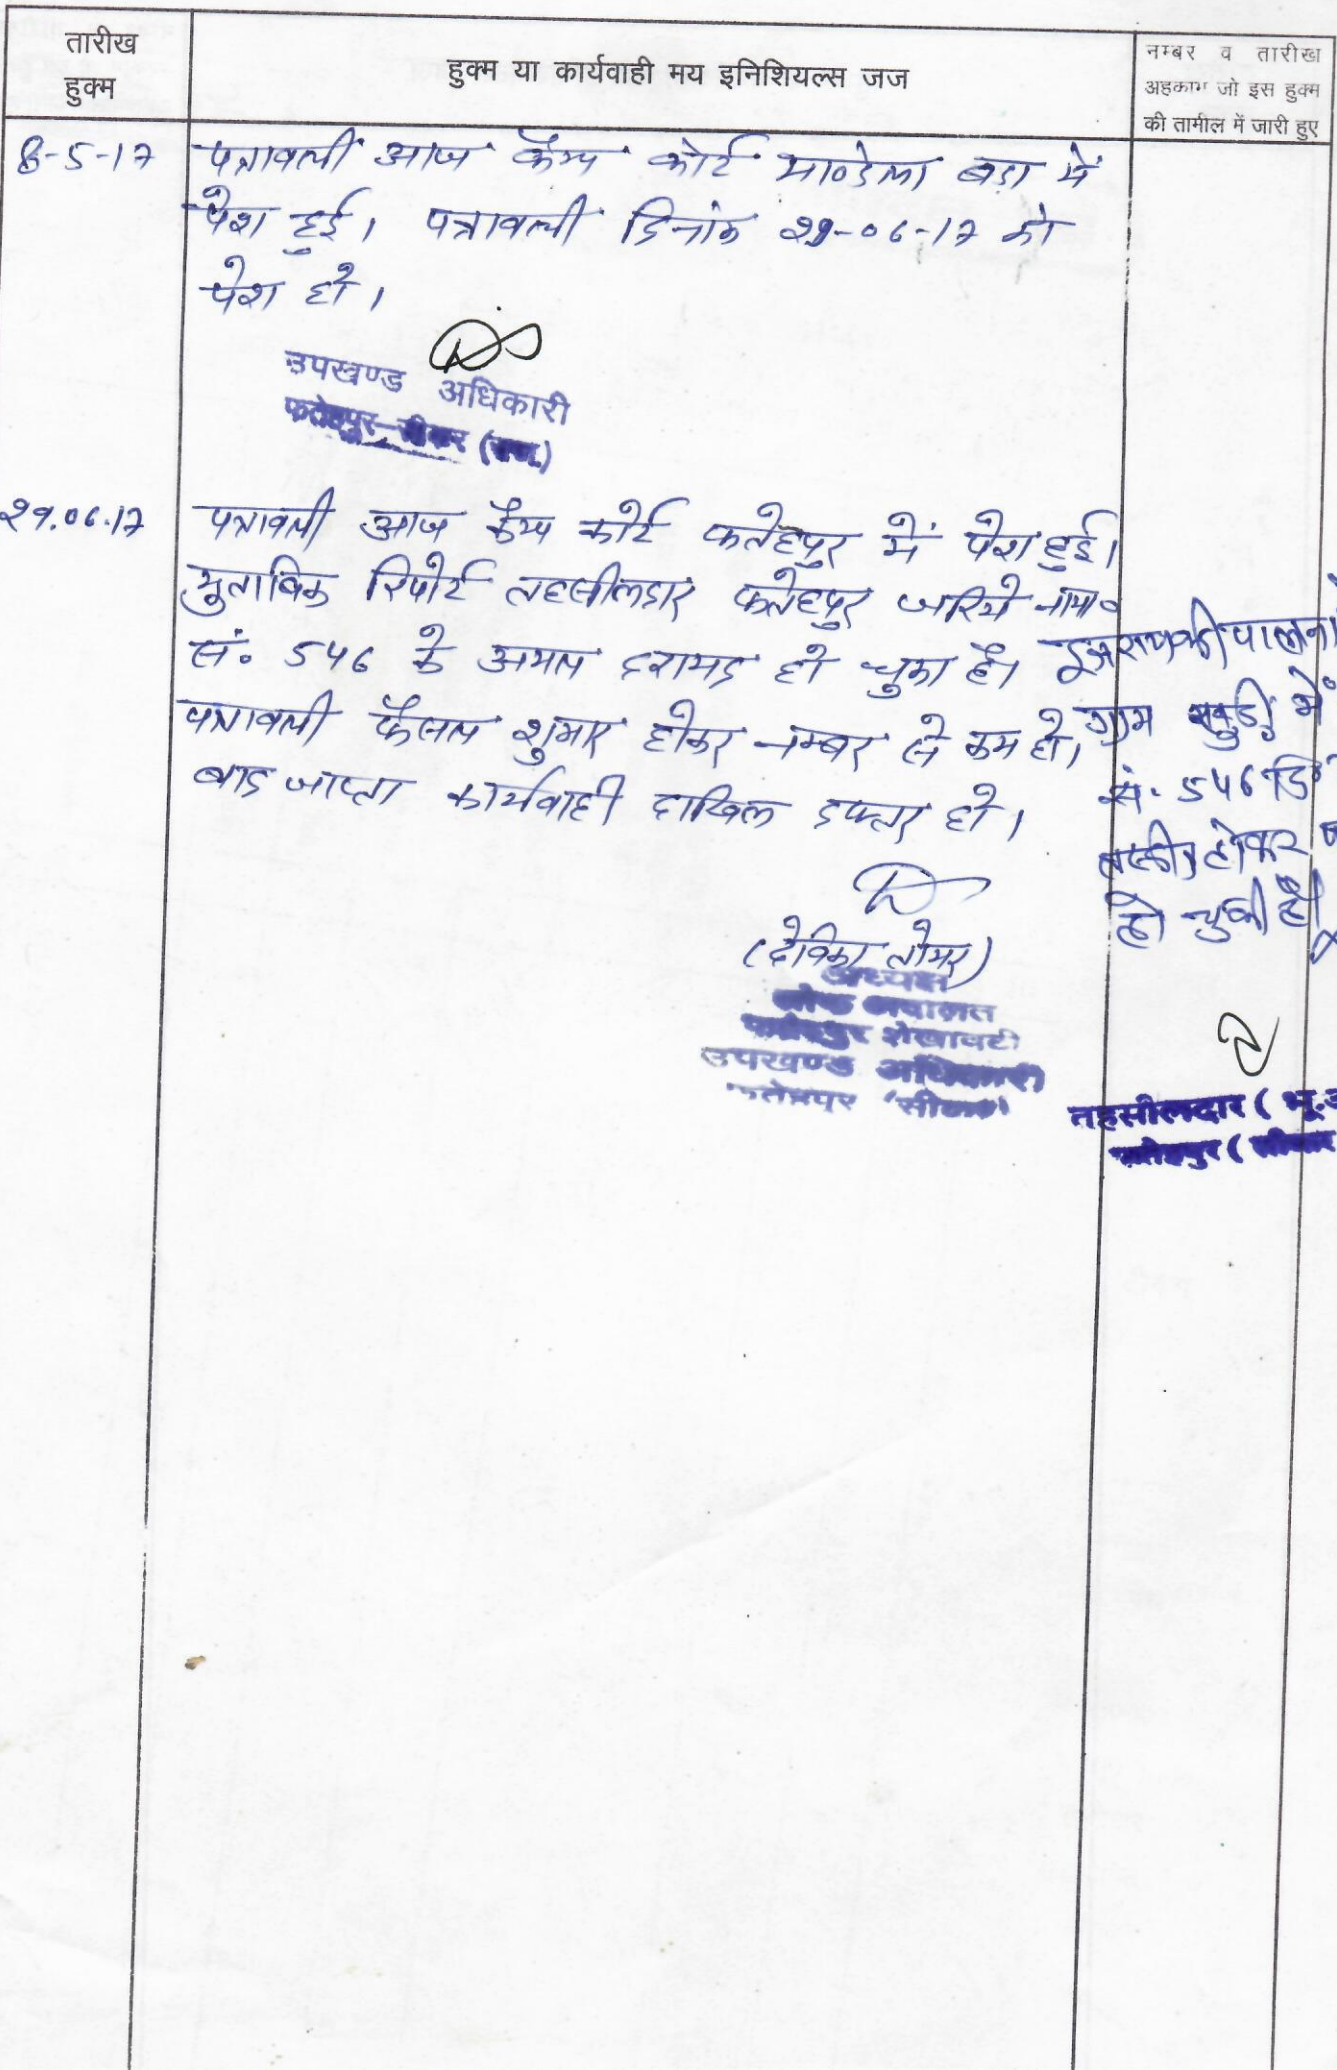 तारीख
हुक्म
हुक्म या कार्यवाही मय इनिशियल्स जज
नम्बर व तारीख
अहकाम जो इस हुक्म
की तामील में जारी हुए
8-5-17
पत्रावली आज कैम्प कोर्ट माण्डेला बडा में
पेश हुई। पत्रावली दिनांक २९-०६-17 को
पेश हो।
उपखण्ड अधिकारी
फतेहपुर-सीकर (राज.)
२९.०६.17
पत्रावली आज कैम्प कोर्ट फतेहपुर में पेश हुई।
मुताबिक रिपोर्ट तहसीलदार फतेहपुर जरिये नामा०
सं. 546 के अमल दरामद हो चुका है।
पत्रावली फैसल शुमार होकर नम्बर से कम हो।
बाद जाप्ता कार्यवाही दाखिल दफ्तर हो।
(देविका तोमर)
अध्यक्ष
लोक अदालत
फतेहपुर शेखावटी
उपखण्ड अधिकारी
फतेहपुर (सीकर)
पालना
ग्राम में
सं. 546 दि
होकर
हो चुकी है
तहसीलदार ( भू.अ
फतेहपुर ( सीकर